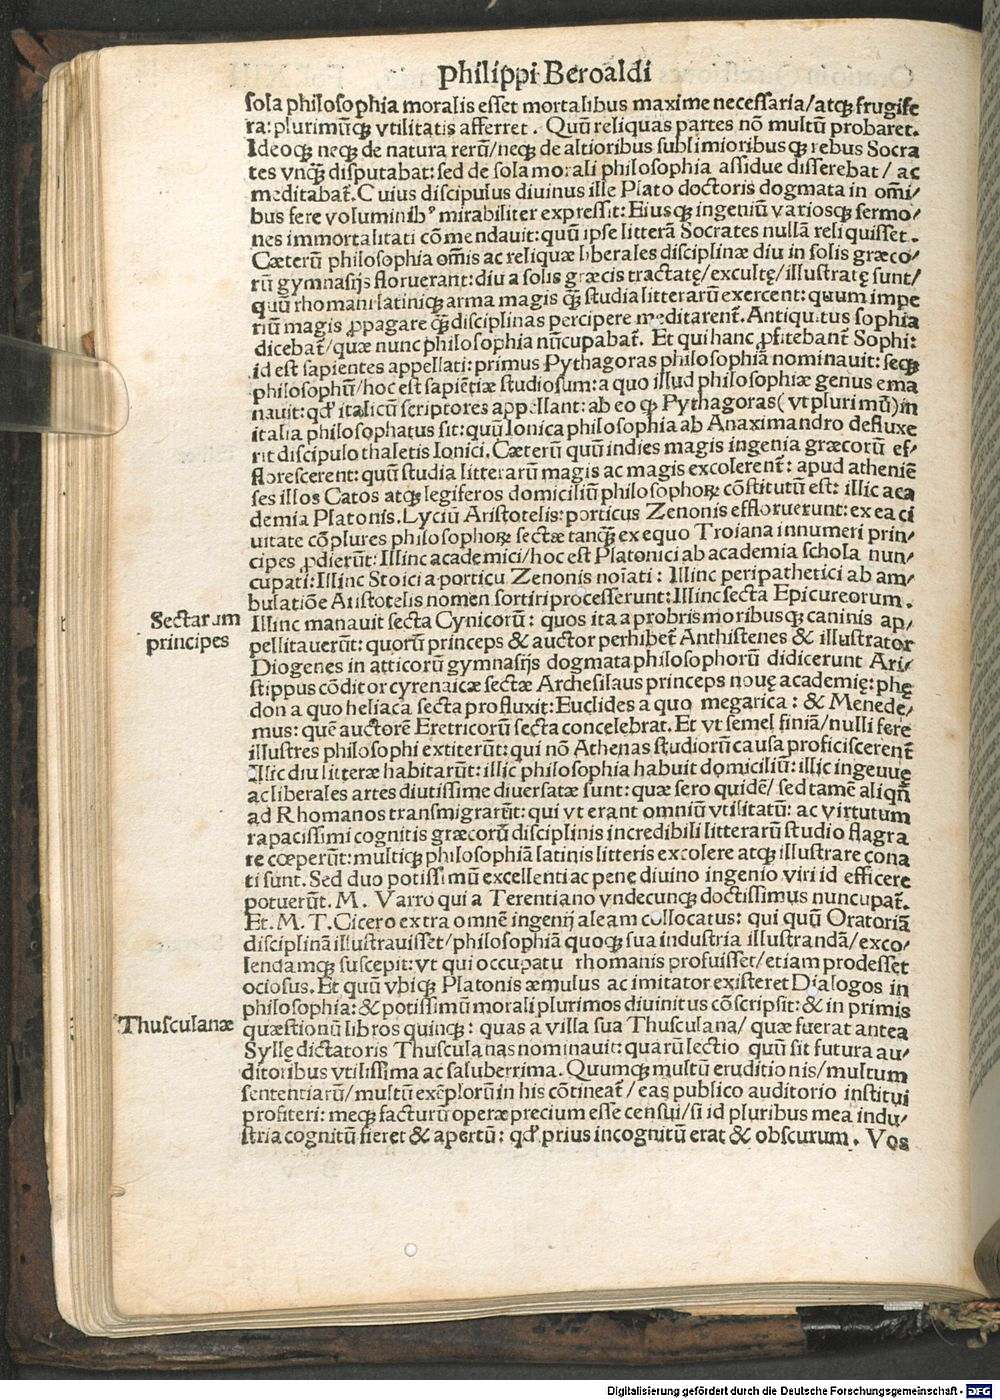 philippi Beroaldi
sola philosophia moralis esset mortalibus maxime necessaria/atqꝫ frugife
ra: plurimūqꝫ vtilitatis afferret. Quū reliquas partes nō multū probaret.
Ideoqꝫ neqꝫ de natura rerū/neqꝫ de altioribus sublimioribusqꝫ rebus Socra
tes vnqꝫ̃ disputabat: sed de sola morali philosophia assidue disserebat/ ac
meditabat̃. Cuius discipulus diuinus ille Plato doctoris dogmata in om̄i/
bus fere voluminibꝰ mirabiliter expressit: Eiusqꝫ ingeniū variosqꝫ sermo/
nes immortalitati cōmendauit: quū ipse litterā Socrates nullā reliquisset.
Cæterū philosophia om̄is ac reliquæ liberales disciplinæ diu in solis græco/
rū gymnasijs floruerant: diu a solis græcis tractatę/excultę/illustratę sunt/
quū rhomani latiniqꝫ arma magis qꝫ̃ studia litterarū exercent: quum impe
rium magis ꝓpagare qꝫ̃ disciplinas percipere meditarent̃. Antiquitus sophia
dicebat̃/quæ nunc philosophia nūcupabat̃. Et qui hanc ꝓfitebant̃ Sophi:
id est sapientes appellati: primus Pythagoras philosophiā nominauit: seqꝫ
philosophū/hoc est sapiētiæ studiosum: a quo illud philosophiæ genus ema
nauit: qd' italicū scriptores appellant: ab eo qꝫ Pythagoras(vt plurimū)in
italia philosophatus sit: quū Ionica philosophia ab Anaximandro defluxe
rit discipulo thaletis Ionici. Cæterū quū indies magis ingenia græcorū ef/
florescerent: quū studia litterarū magis ac magis excolerent̃: apud atheniē
ses illos Catos atqꝫ legiferos domiciliū philosophoꝝ cōstitutū est: illic aca
demia Platonis. Lyciū Aristotelis: porticus Zenonis effloruerunt: ex ea ci
uitate cōplures philosophoꝝ sectæ tanqꝫ̃ ex equo Troiana innumeri prin/
cipes ꝓdierūt: Illinc academici/hoc est Platonici ab academia schola nun/
cupati: Illinc Stoici a porticu Zenonis noīati: Illinc peripathetici ab am/
bulatiōe Aristotelis nomen sortiri processerunt: Illinc secta Epicureorum.
Illinc manauit secta Cynicorū: quos ita a probris moribusqꝫ caninis ap/
pellitauerūt: quorū princeps & auctor perhibet̃ Anthistenes & illustrator
Diogenes in atticorū gymnasijs dogmata philosophorū didicerunt Ari/
stippus cōditor cyrenaicæ sectæ Archesilaus princeps nouę academię: phę
don a quo heliaca secta profluxit: Euclides a quo megarica: & Menede/
mus: quē auctorē Eretricorū secta concelebrat. Et vt semel finiā/nulli fere
illustres philosophi extiterūt: qui nō Athenas studiorū causa proficiscerent̃
Illic diu litteræ habitarūt: illic philosophia habuit domiciliū: illic ingeuuę
ac liberales artes diutissime diuersatæ sunt: quæ sero quidē/ sed tamē aliqñ
ad Rhomanos transmigrarūt: qui vt erant omniū vtilitatū: ac virtutum
rapacissimi cognitis græcorū disciplinis incredibili litterarū studio flagra
re cœperūt: multiqꝫ philosophiā latinis litteris excolere atqꝫ illustrare cona
ti sunt. Sed duo potissimū excellenti ac pene diuino ingenio viri id efficere
potuerūt. M. Varro qui a Terentiano vndecunqꝫ doctissimus nuncupat̃.
Et. M. T. Cicero extra omnē ingenij aleam collocatus: qui quū Oratoriā
disciplinā illustrauisset/philosophiā quoqꝫ sua industria illustrandā/exco/
lendamqꝫ suscepit: vt qui occupatu rhomanis profuisset/etiam prodesset
ociosus. Et quū vbiqꝫ Platonis æmulus ac imitator existeret Dialogos in
philosophia: & potissimū morali plurimos diuinitus cōscripsit: & in primis
quæstionū libros quinqꝫ: quas a villa sua Thusculana/ quæ fuerat antea
Syllę dictatoris Thusculanas nominauit: quarū lectio quū sit futura au/
ditoribus vtilissima ac saluberrima. Quumqꝫ multū eruditionis/multum
sententiarū/multū exēplorū in his cōtineat̃/eas publico auditorio institui
profiteri: meqꝫ facturū operæprecium esse censui/si id pluribus mea indu/
stria cognitū fieret & apertū: qd' prius incognitū erat & obscurum. Vos
Sectarum
principes
Thusculanæ
Digitalisierung gefördert durch die Deutsche Forschungsgemeinschaft - DFG